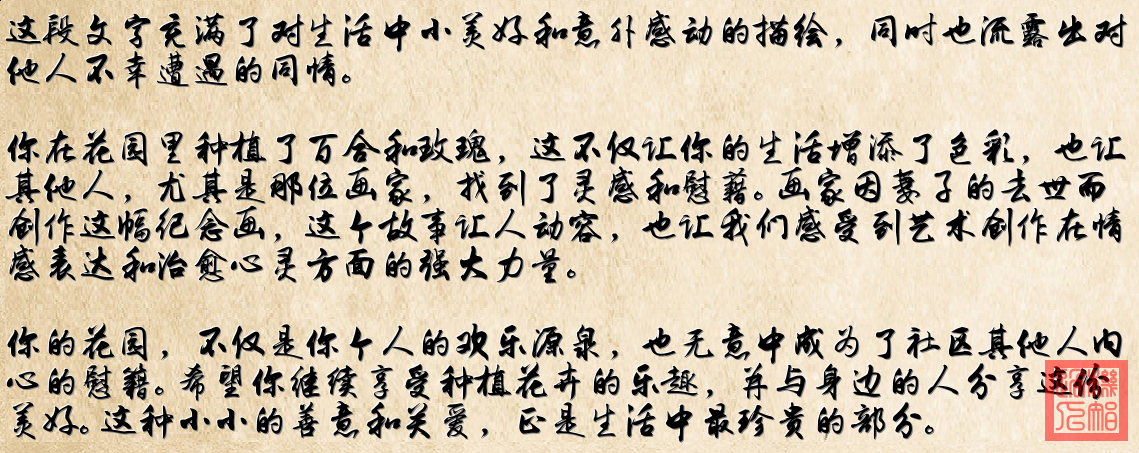 这段文字充满了对生活中小美好和意外感动的描绘，同时也流露出对
他人不幸遭遇的同情。
你在花园里种植了百合和玫瑰，这不仅让你的生活增添了色彩，也让
其他人，尤其是那位画家，找到了灵感和慰藉。画家因妻子的去世而
创作这幅纪念画，这个故事让人动容，也让我们感受到艺术创作在情
感表达和治愈心灵方面的强大力量。
你的花园，不仅是你个人的欢乐源泉，也无意中成为了社区其他人内
心的慰籍。希望你继续享受种植花卉的乐趣，并与身边的人分享这份
美好。这种小小的善意和关爱，正是生活中最珍贵的部分。